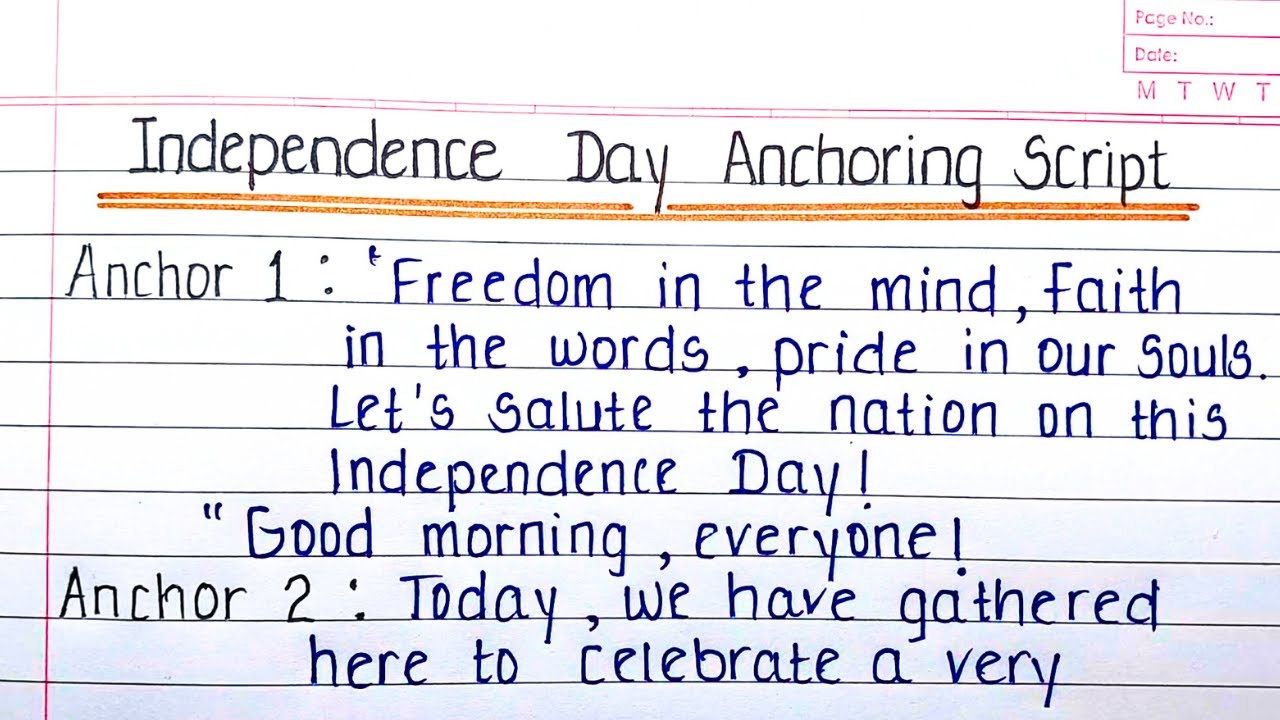 Page No.:
Date:
M T W T
Independence Day Anchoring Script
Anchor 1 : ‘Freedom in the mind, Faith
in the words, pride in our souls.
Let's salute the nation on this
Independence Day!
“Good morning, everyone!
Anchor 2 : Today, we have gathered
here to celebrate a very